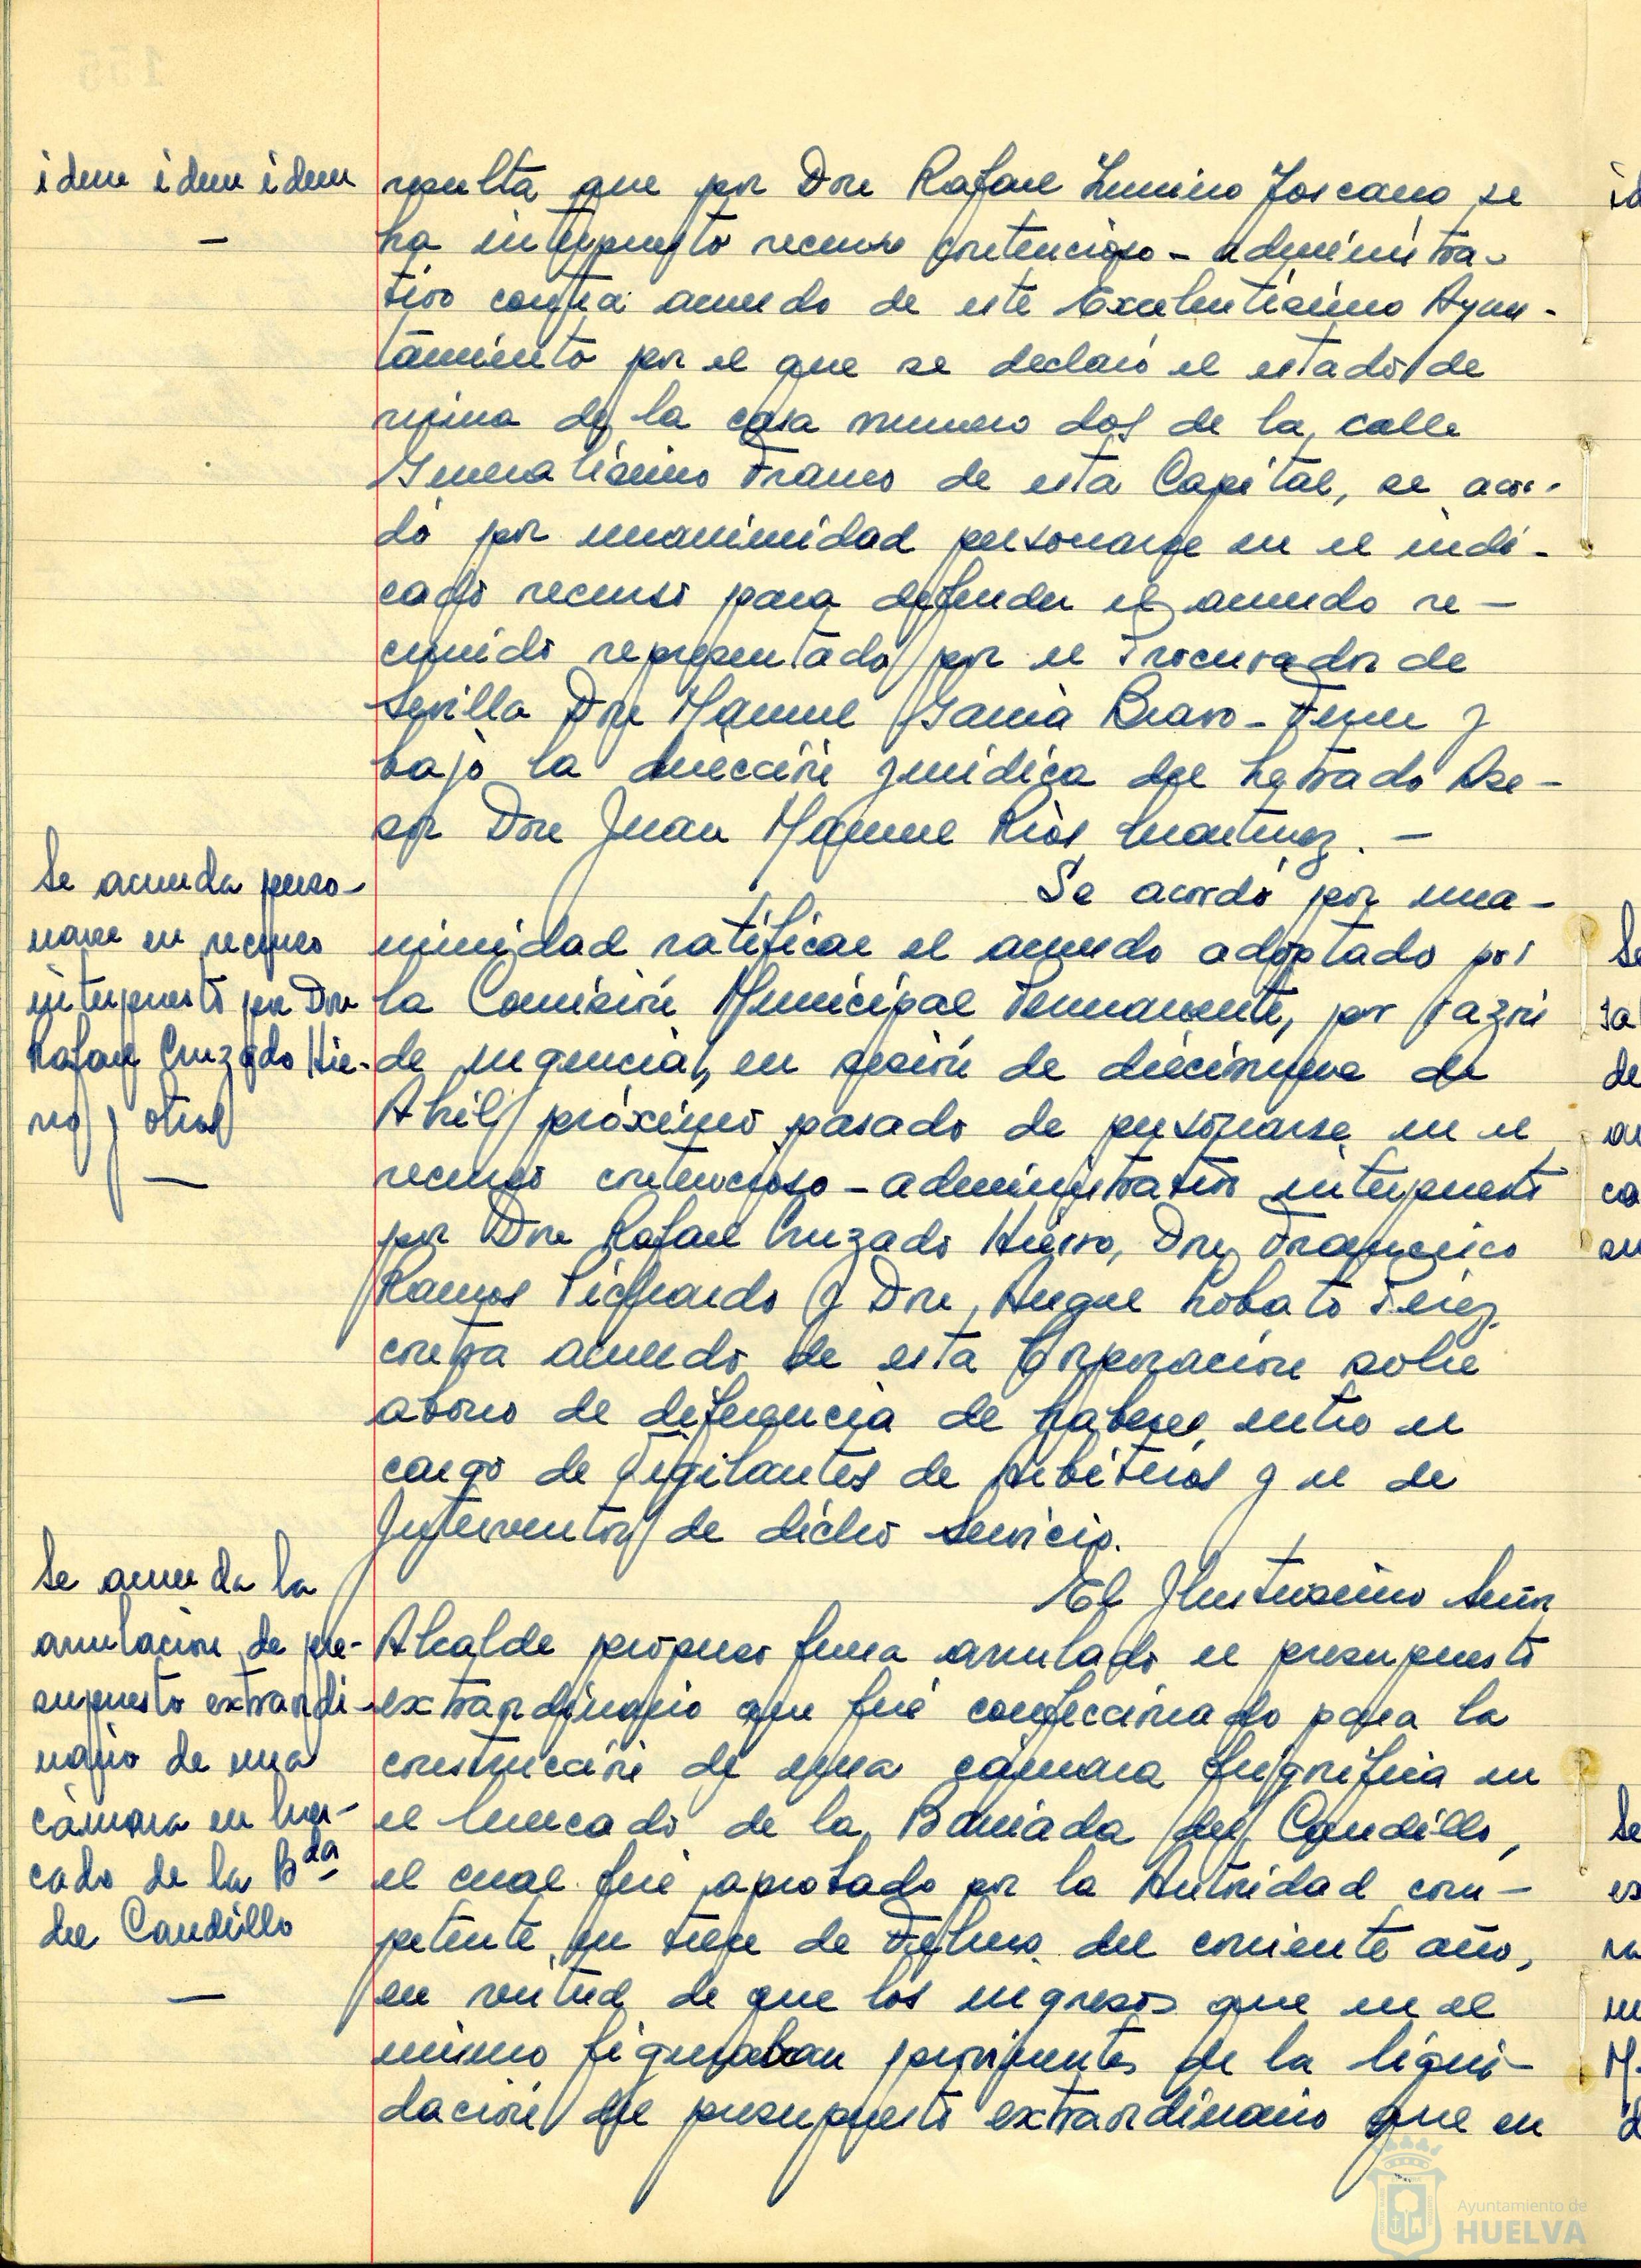 idem idem idem
—
resulta que por Don Rafael Toscano se
ha interpuesto recurso contencioso-administra-
tivo contra acuerdo de este Excelentísimo Ayun-
tamiento por el que se declaró el estado de
ruina de la casa numero dos de la calle
Generalísimo Franco de esta Capital, se acor-
dó por unanimidad personarse en el indi-
cado recurso para defender el acuerdo re-
currido representado por el Procurador de
Sevilla Don Manuel García Bravo-Ferrer y
bajo la dirección jurídica del Letrado Ase-
sor Don Juan Manuel Ríos Martinez. —
Se acuerda perso-
narse en recurso
interpuesto por Don
Rafael Cruzado Hie-
rro y otros
—
Se acordó por una-
nimidad ratificar el acuerdo adoptado por
la Comisión Municipal Permanente, por razón
de urgencia, en sesión de diecinueve de
Abril próximo pasado de personarse en el
recurso contencioso-administrativo interpuesto
por Don Rafael Cruzado Hierro, Don Francisco
Ramos Pichardo y Don Angel Lobato Perez
contra acuerdo de esta Corporación sobre
abono de diferencia de haberes entre el
cargo de Vigilantes de Arbitrios y el de
Interventor de dicho Servicio.
Se acuerda la
anulación de pre-
supuesto extraordi-
nario de una
cámara en Mer-
cado de la Bda
del Caudillo
—
El Ilustrisimo Señor
Alcalde propuso fuera anulado el presupuesto
extraordinario que fué confeccionado para la
construcción de una cámara frigorífica en
el Mercado de la Barriada del Caudillo,
el cual fué aprobado por la Autoridad com-
petente en de Febrero del corriente año,
en virtud de que los ingresos que en el
mismo figuraban provinentes de la liqui-
dación del presupuesto extraordinario que en
Ayuntamiento de
HUELVA